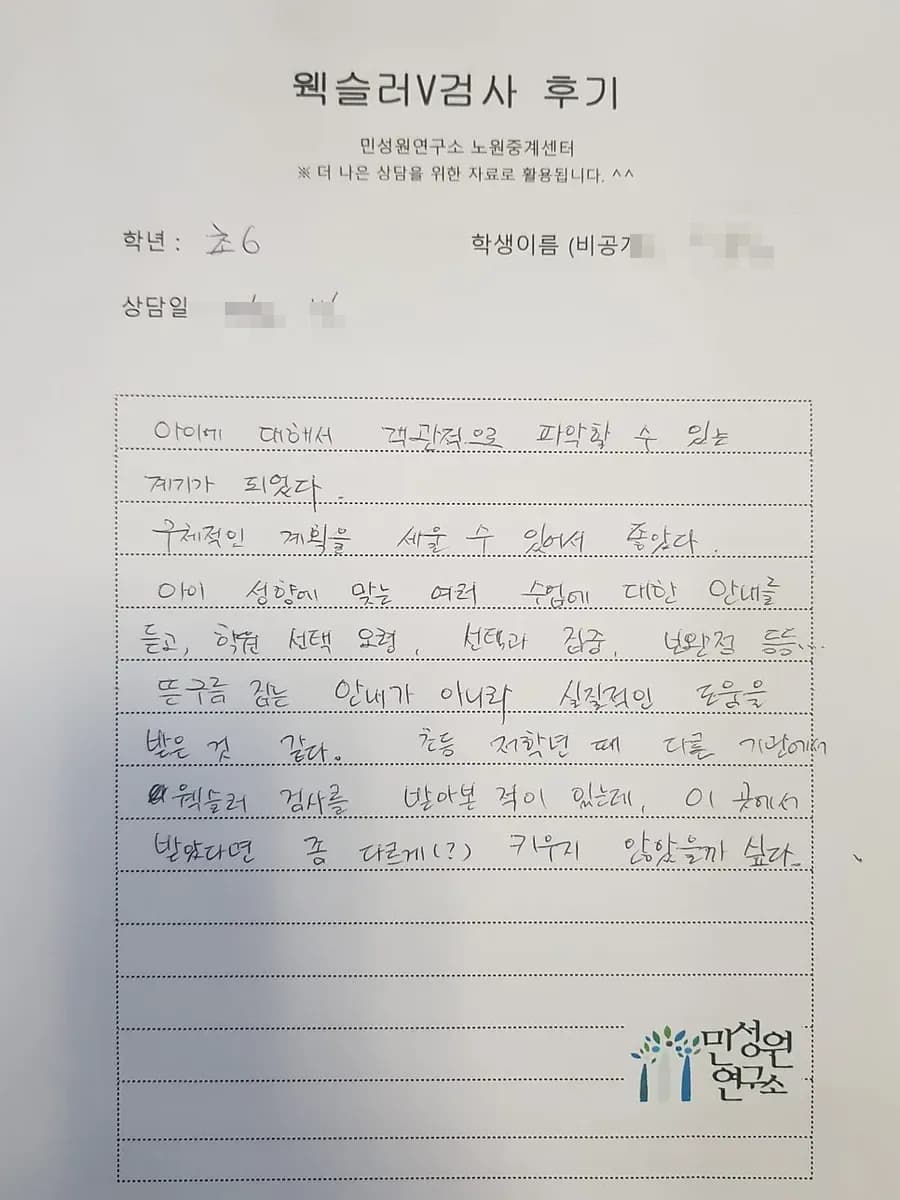 웩슬러V검사 후기
민성원연구소 노원중계센터
※ 더 나은 상담을 위한 자료로 활용됩니다. ^^
학년 : 초6
학생이름 (비공개
상담일
아이에 대해서 객관적으로 파악할 수 있는
계기가 되었다.
구체적인 계획을 세울 수 있어서 좋았다.
아이 성향에 맞는 여러 수업에 대한 안내를
듣고, 학원 선택 요령, 선택과 집중, 보완점 등등...
뜬구름 잡는 안내가 아니라 실질적인 도움을
받은 것 같다. 초등 저학년 때 다른 기관에서
웩슬러 검사를 받아본 적이 있는데, 이 곳에서
받았다면 좀 다르게(?) 키우지 않았을까 싶다.
민성원
연구소